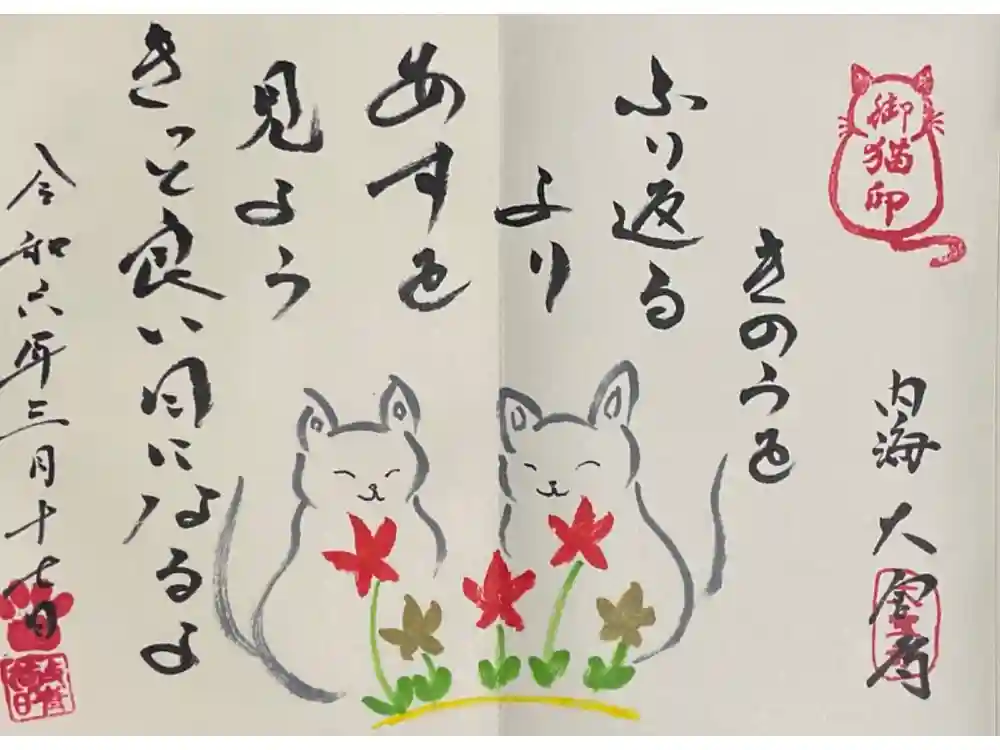 御猫印
内海
大宮
きのうを
ふり返る
より
あすを
見よう
きっと良い日になるよ
令和六年三月十七日